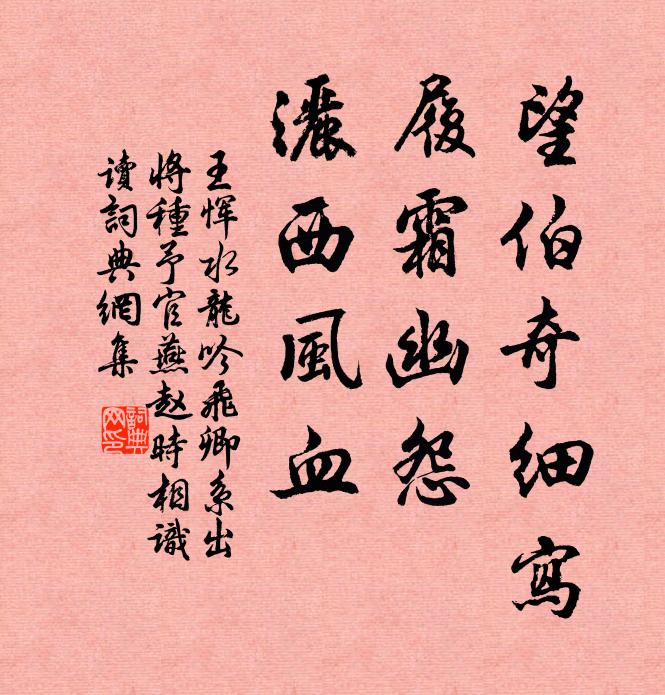 望伯奇細寫
履霜幽怨
灑西風血
王惲水龍吟飛卿系出
將種予官燕趙時相識
讀詞典網集
詞典
网印